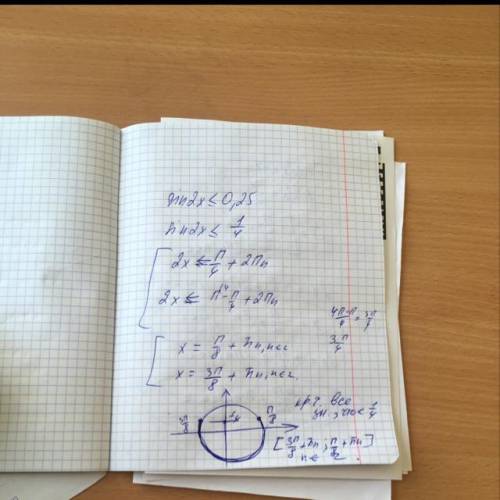 sin2x ≤ 0,25
sin2x ≤ 1/4
2x ≤ π/4 + 2πn
2x ≤ π - π/4 + 2πn
4π-π/4 = 3π/4
3π/4
x = π/8 + πn, n∈z
x = 3π/8 + πn, n∈z
3π/8
1/4
π/8
все
< 1/4
[3π/8 + πn; π/8 + πn]
n∈z